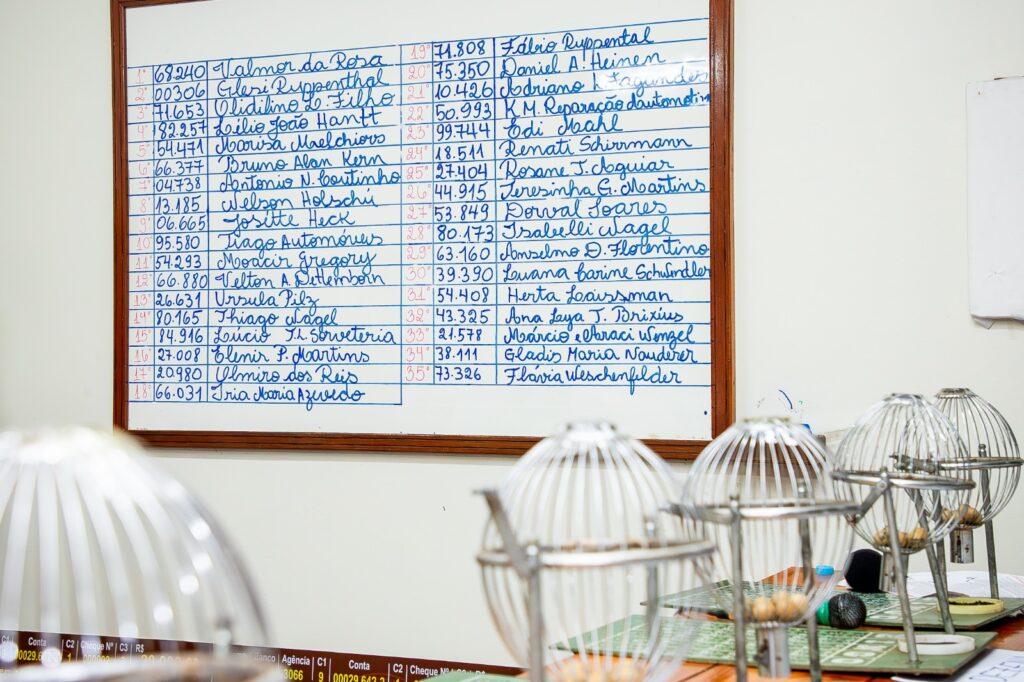 1º 68.240 Valmor da Rosa
2º 00306 Glesi Ruppenthal
3º 71.653 Olidilino L. Filho
4º 182.257 Lélio João Hantt
5º 54.471 Marisa Maelchiors
6º 66.377 Bruno Alan Kern
7º 04.738 Antonio N. Coutinho
8º 13.185 Nelson Holschú
9º 06.665 Josette Heck
10º 95.580 Tiago Automóveis
11º 54.293 Moacir Gregory
12º 66.880 Velton A. Dettemborn
13º 26.631 Ursula Pilz
14º 80.165 Thiago Wagel
15º 84.916 Lúcio T.L. Sorveteria
16º 27.008 Elenir P. Martins
17º 20.980 Olmiro dos Reis
18º 66.031 Iria Maria Azevedo
19º 71.808 Fábio Ruppental
20º 75.350 Daniel A. Heinen
21º 10.426 Adriano L. Fagundes
22º 50.993 K.M. Reparação d'automotiva
23º 99.744 Edi Mahl
24º 18.511 Renati Schirrmann
25º 27.404 Rosane T. Aguiar
26º 44.915 Teresinha G. Martins
27º 53.849 Dorval Soares
28º 80.173 Isabelli Wagel
29º 63.160 Anselmo D. Florentino
30º 39.390 Luana Carine Schwindler
31º 54.408 Herta Laissman
32º 43.325 Ana Laya T. Brixius
33º 21.578 Márcio e Maraci Wenzel
34º 38.111 Gladis Maria Nauderer
35º 73.326 Flávia Weschenfelder
C1 Conta C2 Cheque Nº C3 R$
Banco Agência C1 Conta C2 Cheque Nº
3066 9 00029.642.2